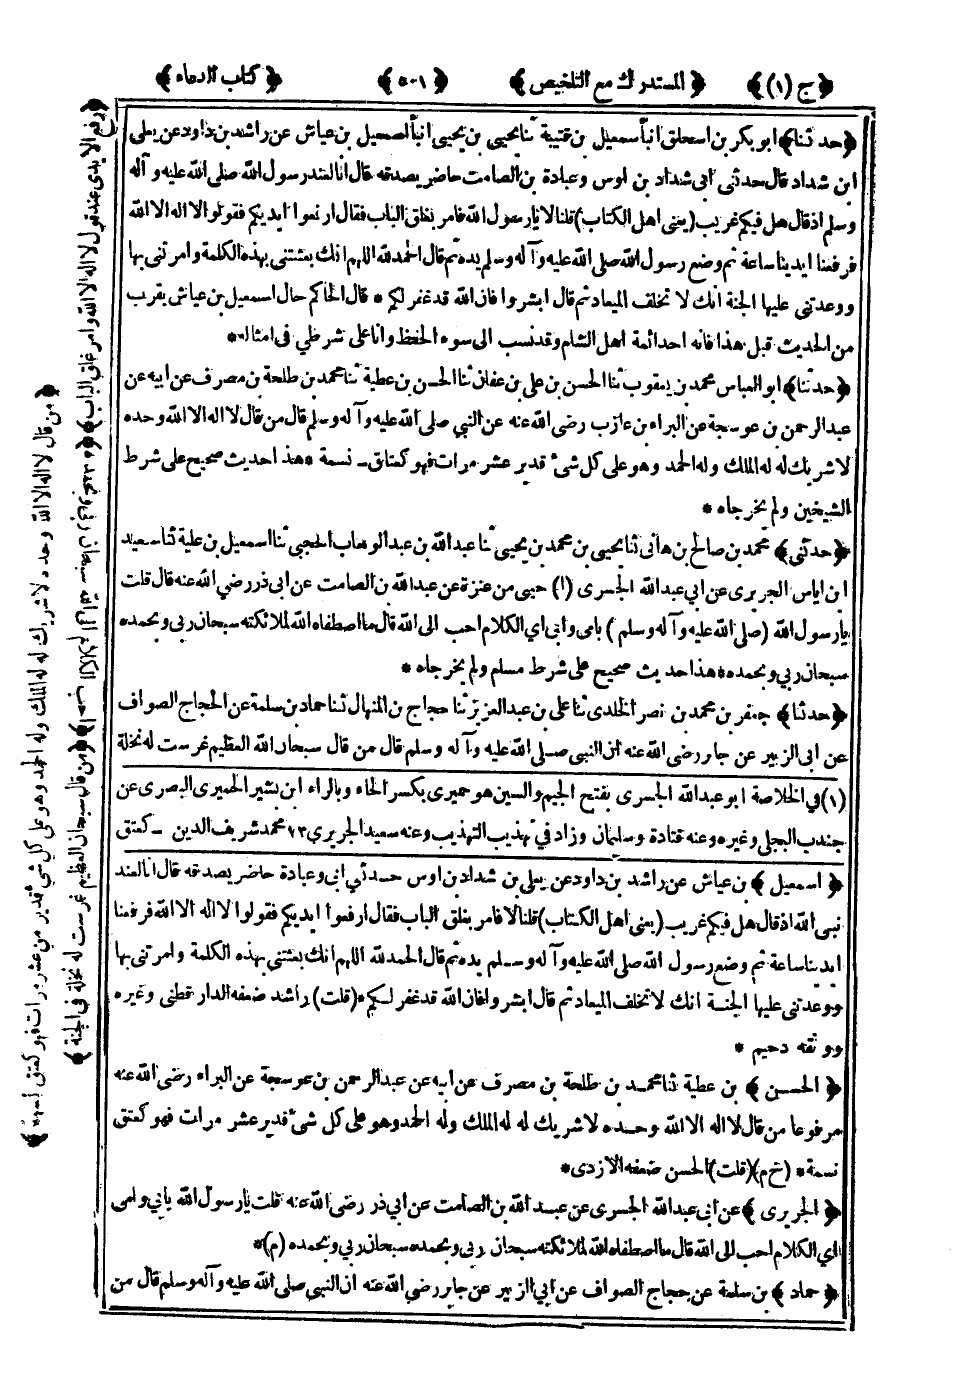 ﴿ ج (١) ﴾ ﴿ المستدرك مع التلخيص ﴾ ﴿ ٥٠١ ﴾ ﴿ كتاب الدعاء ﴾
﴿حدثنا﴾ ابو بكر بن اسحاق انبأ اسمعيل بن قتيبة ثنا يحيى بن يحيى انبأ اسمعيل بن عياش عن راشد بن داود عن يعلى
ابن شداد قال حدثنى ابى شداد بن اوس وعبادة بن الصامت حاضر يصدقه قال انا لعند رسول الله صلى الله عليه وآله
وسلم اذ قال هل فيكم غريب (يعنى اهل الكتاب) قلنا لا يا رسول الله فامر بغلق الباب فقال ارفعوا ايديكم فقولوا لا اله الا الله
فرفعنا ايدينا ساعة ثم وضع رسول الله صلى الله عليه وآله وسلم يده ثم قال الحمد لله اللهم انك بعثتنى بهذه الكلمة وامرتنى بها
ووعدتنى عليها الجنة انك لا تخلف الميعاد ثم قال ابشروا فان الله قد غفر لكم * قال الحاكم حال اسمعيل بن عياش يقرب
من الحديث قبل هذا فانه احد ائمة اهل الشام وقد نسب الى سوء الحفظ وانا على شرطى فى امثاله*
﴿حدثنا﴾ ابو العباس محمد بن يعقوب ثنا الحسن بن على بن عفان ثنا الحسن بن عطية ثنا محمد بن طلحة بن مصرف عن ابيه عن
عبد الرحمن بن عوسجة عن البراء بن عازب رضى الله عنه عن النبي صلى الله عليه وآله وسلم قال من قال لا اله الا الله وحده
لا شريك له له الملك وله الحمد وهو على كل شئ قدير عشر مرات فهو كمتاق - نسمة * هذا حديث صحيح على شرط
الشيخين ولم يخرجاه *
﴿حدثنى﴾ محمد بن صالح بن هانى ثنا يحيى بن محمد بن يحيى ثنا عبد الله بن عبد الوهاب الحجبي ثنا اسمعيل بن علية ثنا سعيد
ابن اياس الجريرى عن ابي عبد الله الجسرى (١) حيى من عنزة عن عبد الله بن الصامت عن ابى ذر رضي الله عنه قال قلت
يا رسول الله (صلى الله عليه وآله وسلم) بامى وابى اي الكلام احب الى الله قال ما اصطفاه الله لملائكته سبحان ربى وبحمده
سبحان ربي وبحمده * هذا حديث صحيح على شرط مسلم ولم يخرجاه *
﴿حدثنا﴾ جعفر بن محمد بن نصر الخلدى ثنا على بن عبد العزيز ثنا حجاج بن المنهال ثنا حماد بن سلمة عن الحجاج الصواف
عن ابى الزبير عن جابر رضى الله عنه ان النبي صلى الله عليه وآله وسلم قال من قال سبحان الله العظيم غرست له نخلة
(١) في الخلاصة ابو عبد الله الجسرى بفتح الجيم والسين هو حميرى بكسر الحاء وبالراء ابن بشير الحميرى البصرى عن
جندب البجلى وغيره وعنه قتادة وسليمان وزاد في تهذيب التهذيب وعنه سعيد الجريرى ١٢ محمد شريف الدين - كمتق
﴿ اسمعيل ﴾ بن عياش عن راشد بن داود عن يعلى بن شداد بن اوس حدثني ابى وعبادة حاضر يصدقه قال انا لعند
نبى الله اذ قال هل فيكم غريب (يعنى اهل الكتاب) قلنا لا فامر بغلق الباب فقال ارفعوا ايديكم فقولوا لا اله الا الله فرفعنا
ايدينا ساعة ثم وضع رسول الله صلى الله عليه وآله وسلم يده ثم قال الحمد لله اللهم انك بعثتنى بهذه الكلمة وامرتنى بها
ووعدتنى عليها الجنة انك لا تخلف الميعاد ثم قال ابشروا فان الله قد غفر لكم * (قلت) راشد ضعفه الدارقطنى وغيره
ووثقه دحيم *
﴿ الحسن ﴾ بن عطية ثنا محمد بن طلحة بن مصرف عن ابيه عن عبد الرحمن بن عوسجة عن البراء رضى الله عنه
مرفوعا من قال لا اله الا الله وحده لا شريك له له الملك وله الحمد وهو على كل شئ قدير عشر مرات فهو كمتق
نسمة * (خ م) (قلت) الحسن ضعفه الازدى*
﴿ الجريرى ﴾ عن ابى عبد الله الجسرى عن عبد الله بن الصامت عن ابي ذر رضى الله عنه قلت يا رسول الله بابي وامى
اي الكلام احب الى الله قال ما اصطفاه الله لملائكته سبحان ربى وبحمده سبحان ربي وبحمده (م)*
﴿ حماد ﴾ بن سلمة عن حجاج الصواف عن ابي الزبير عن جابر رضى الله عنه ان النبي صلى الله عليه وآله وسلم قال من
﴿رفع الايدى عند قول لا اله الا الله وامر غلق الباب﴾ ﴿احب الكلام الى الله سبحان ربى وبحمده﴾ ﴿من قال سبحان الله العظيم غرست له نخلة فى الجنة﴾
﴿من قال لا اله الا الله وحده لا شريك له له الملك وله الحمد وهو على كل شئ قدير من عشر مرات فهو كمتق نسمة﴾